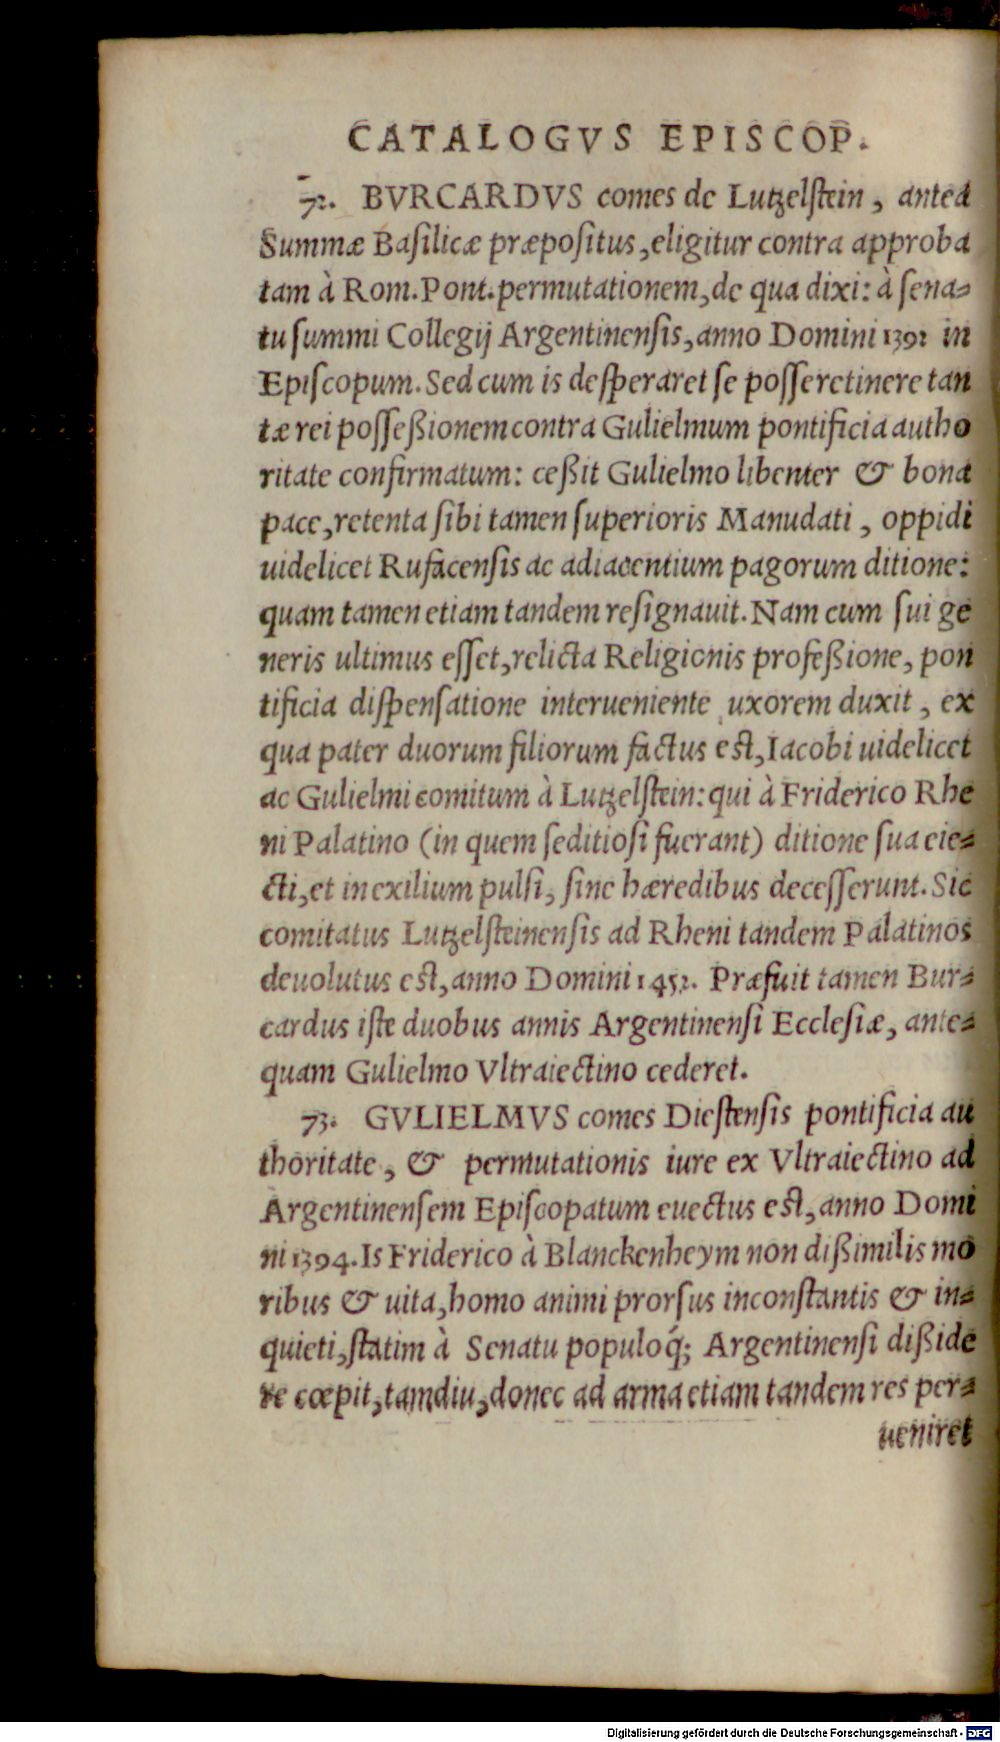 CATALOGVS EPISCOP.
72. BVRCARDVS comes de Lutzelstein, anteà
Summæ Basilicæ præpositus, eligitur contra approba
tam à Rom. Pont. permutationem, de qua dixi: à sena-
tu summi Collegij Argentinensis, anno Domini 1392 in
Episcopum. Sed cum is desperaret se posse retinere tan
tæ rei possessionem contra Gulielmum pontificia autho
ritate confirmatum: cessit Gulielmo libenter & bona
pace, retenta sibi tamen superioris Manudati, oppidi
uidelicet Rufacensis ac adiacentium pagorum ditione:
quam tamen etiam tandem resignauit. Nam cum sui ge
neris ultimus esset, relicta Religionis professione, pon
tificia dispensatione interueniente uxorem duxit, ex
qua pater duorum filiorum factus est, Iacobi uidelicet
ac Gulielmi comitum à Lutzelstein: qui à Friderico Rhe
ni Palatino (in quem seditiosi fuerant) ditione sua eie-
cti, et in exilium pulsi, sine hæredibus decesserunt. Sic
comitatus Lutzelsteinensis ad Rheni tandem Palatinos
deuolutus est, anno Domini 1452. Præfuit tamen Bur-
cardus iste duobus annis Argentinensi Ecclesiæ, ante-
quam Gulielmo Vltraiectino cederet.
73. GVLIELMVS comes Diestensis pontificia au
thoritate, & permutationis iure ex Vltraiectino ad
Argentinensem Episcopatum euectus est, anno Domi
ni 1394. Is Friderico à Blanckenheym non dissimilis mo
ribus & uita, homo animi prorsus inconstantis & in-
quieti, statim à Senatu populoq́; Argentinensi disside
re cœpit, tamdiu, donec ad arma etiam tandem res per-
ueniret
Digitalisierung gefördert durch die Deutsche Forschungsgemeinschaft - DFG